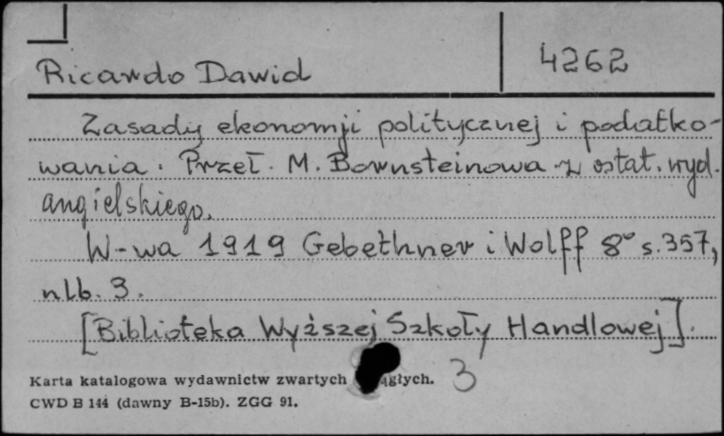 Ricardo Dawid 4262
Zasady ekonomji politycznej i podatko-
wania. Przeł. M. Bornsteinowa z ostat. wyd.
angielskiego.
W-wa 1919 Gebethner i Wolff 8° s. 357,
nlb. 3.
[Biblioteka Wyższej Szkoły Handlowej].
Karta katalogowa wydawnictw zwartych 3
CWD B 144 (dawny B-15b). ZGG 91.